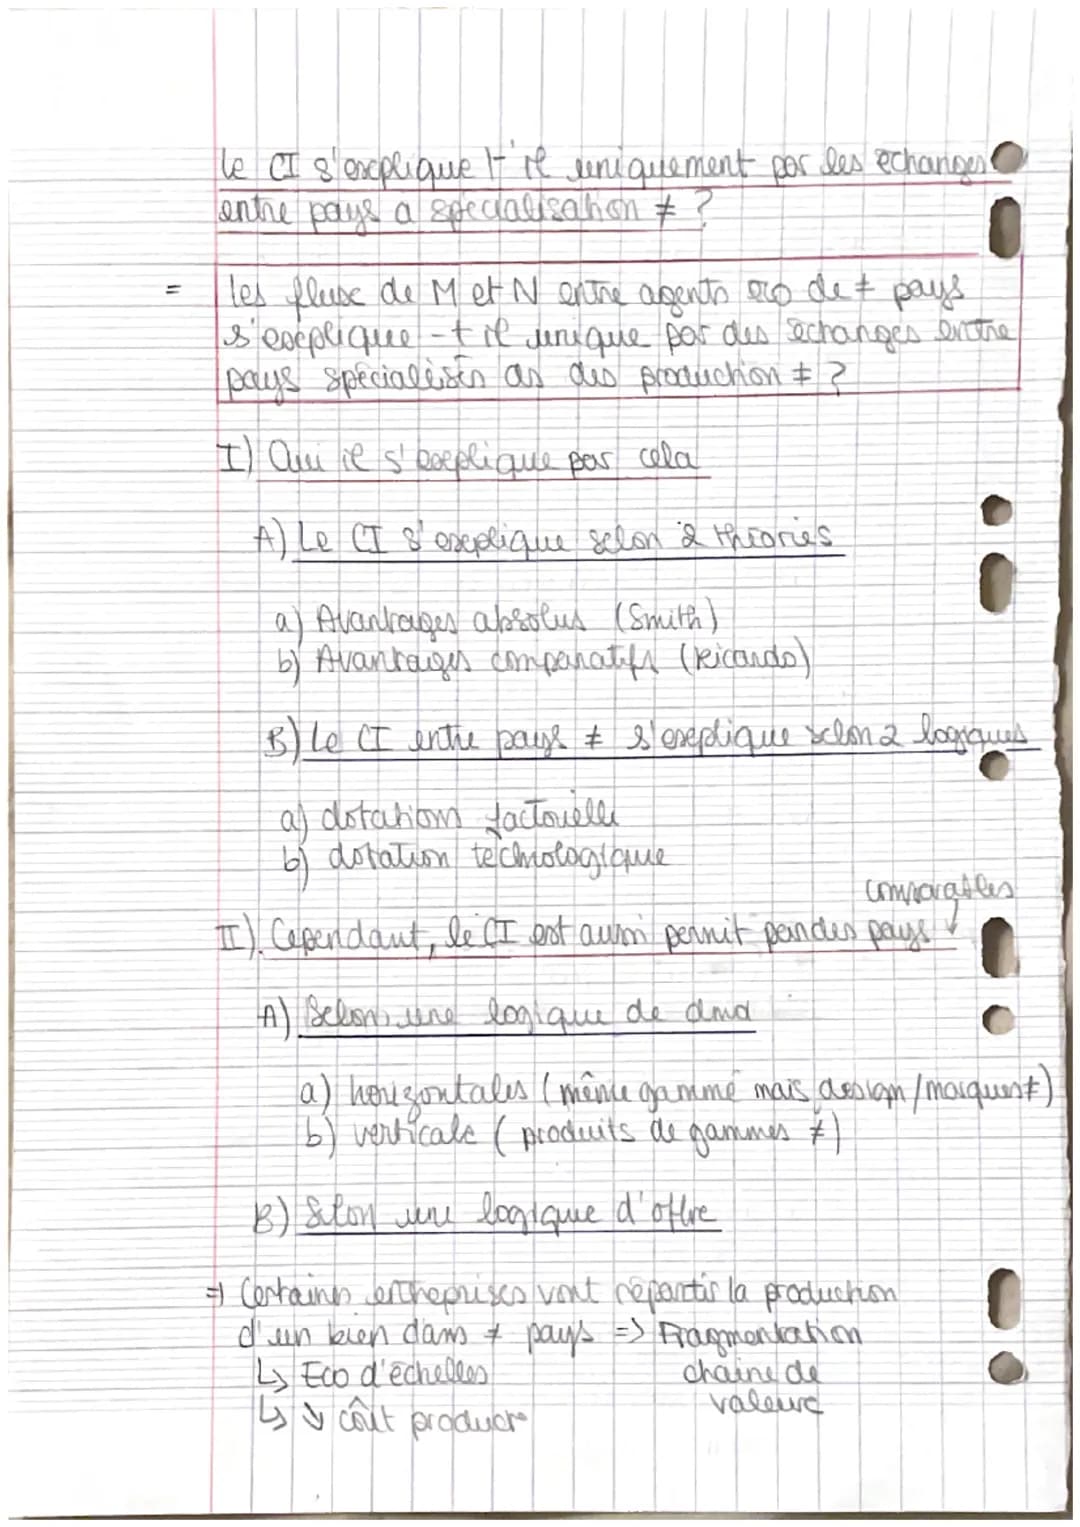 Le CI s'explique t-il uniquement par les échanges
entre pays a spécialisation ≠ ?
= les flux de M et N entre agents éco de ≠ pays
s'explique -t il unique par des échanges entre
pays spécialisés ds des production ≠ ?
I) Oui il s'explique par cela
A) Le CI s'explique selon 2 théories
a) Avantages absolus (Smith)
b) Avantages comparatifs (Ricardo)
B) Le CI entre pays ≠ s'explique selon 2 logiques
a) dotations factorielle
b) dotation technologique
comparables
II). Cependant, le CI est aussi permit par des pays ↓
A) Selon une logique de dmd
a) horizontales (même gamme mais design/marques ≠)
b) verticale (produits de gammes ≠)
B) Selon une logique d'offre
=) Certains entreprises vont répartir la production
d'un bien dans ≠ pays => Fragmentation
↳ Eco d'échelles chaine de
↳ ↓ coût product° valeure